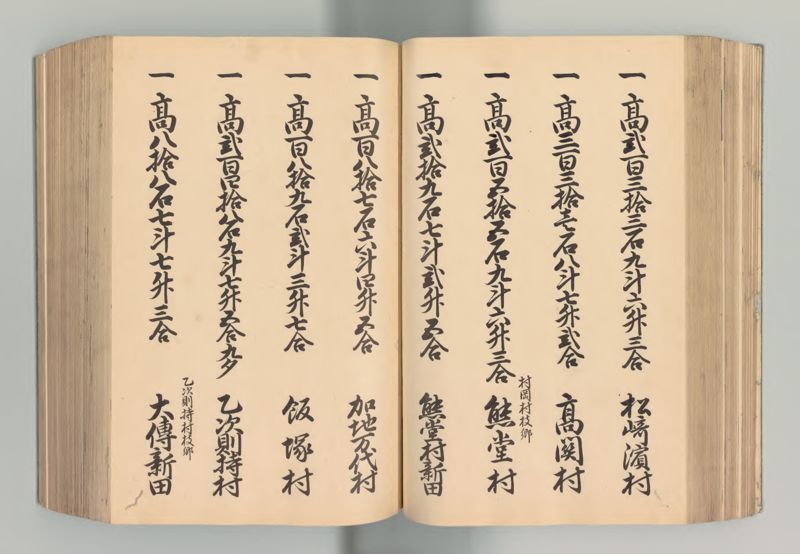 一 高弐百三拾三石九斗六升三合 松崎濱村
一 高三百三拾壱石八斗七升弐合 高関村
村岡村枝郷
一 高弐百五拾五石九斗六升三合 熊堂村
一 高弐拾九石七斗弐升五合 熊堂村新田
一 高百八拾七石六斗四升五合 加地万代村
一 高百八拾九石弐斗三升七合 飯塚村
一 高弐百四拾八石九斗七升五合九夕 乙次則持村
乙次則持村枝郷
一 高八拾八石七斗七升三合 大傳新田